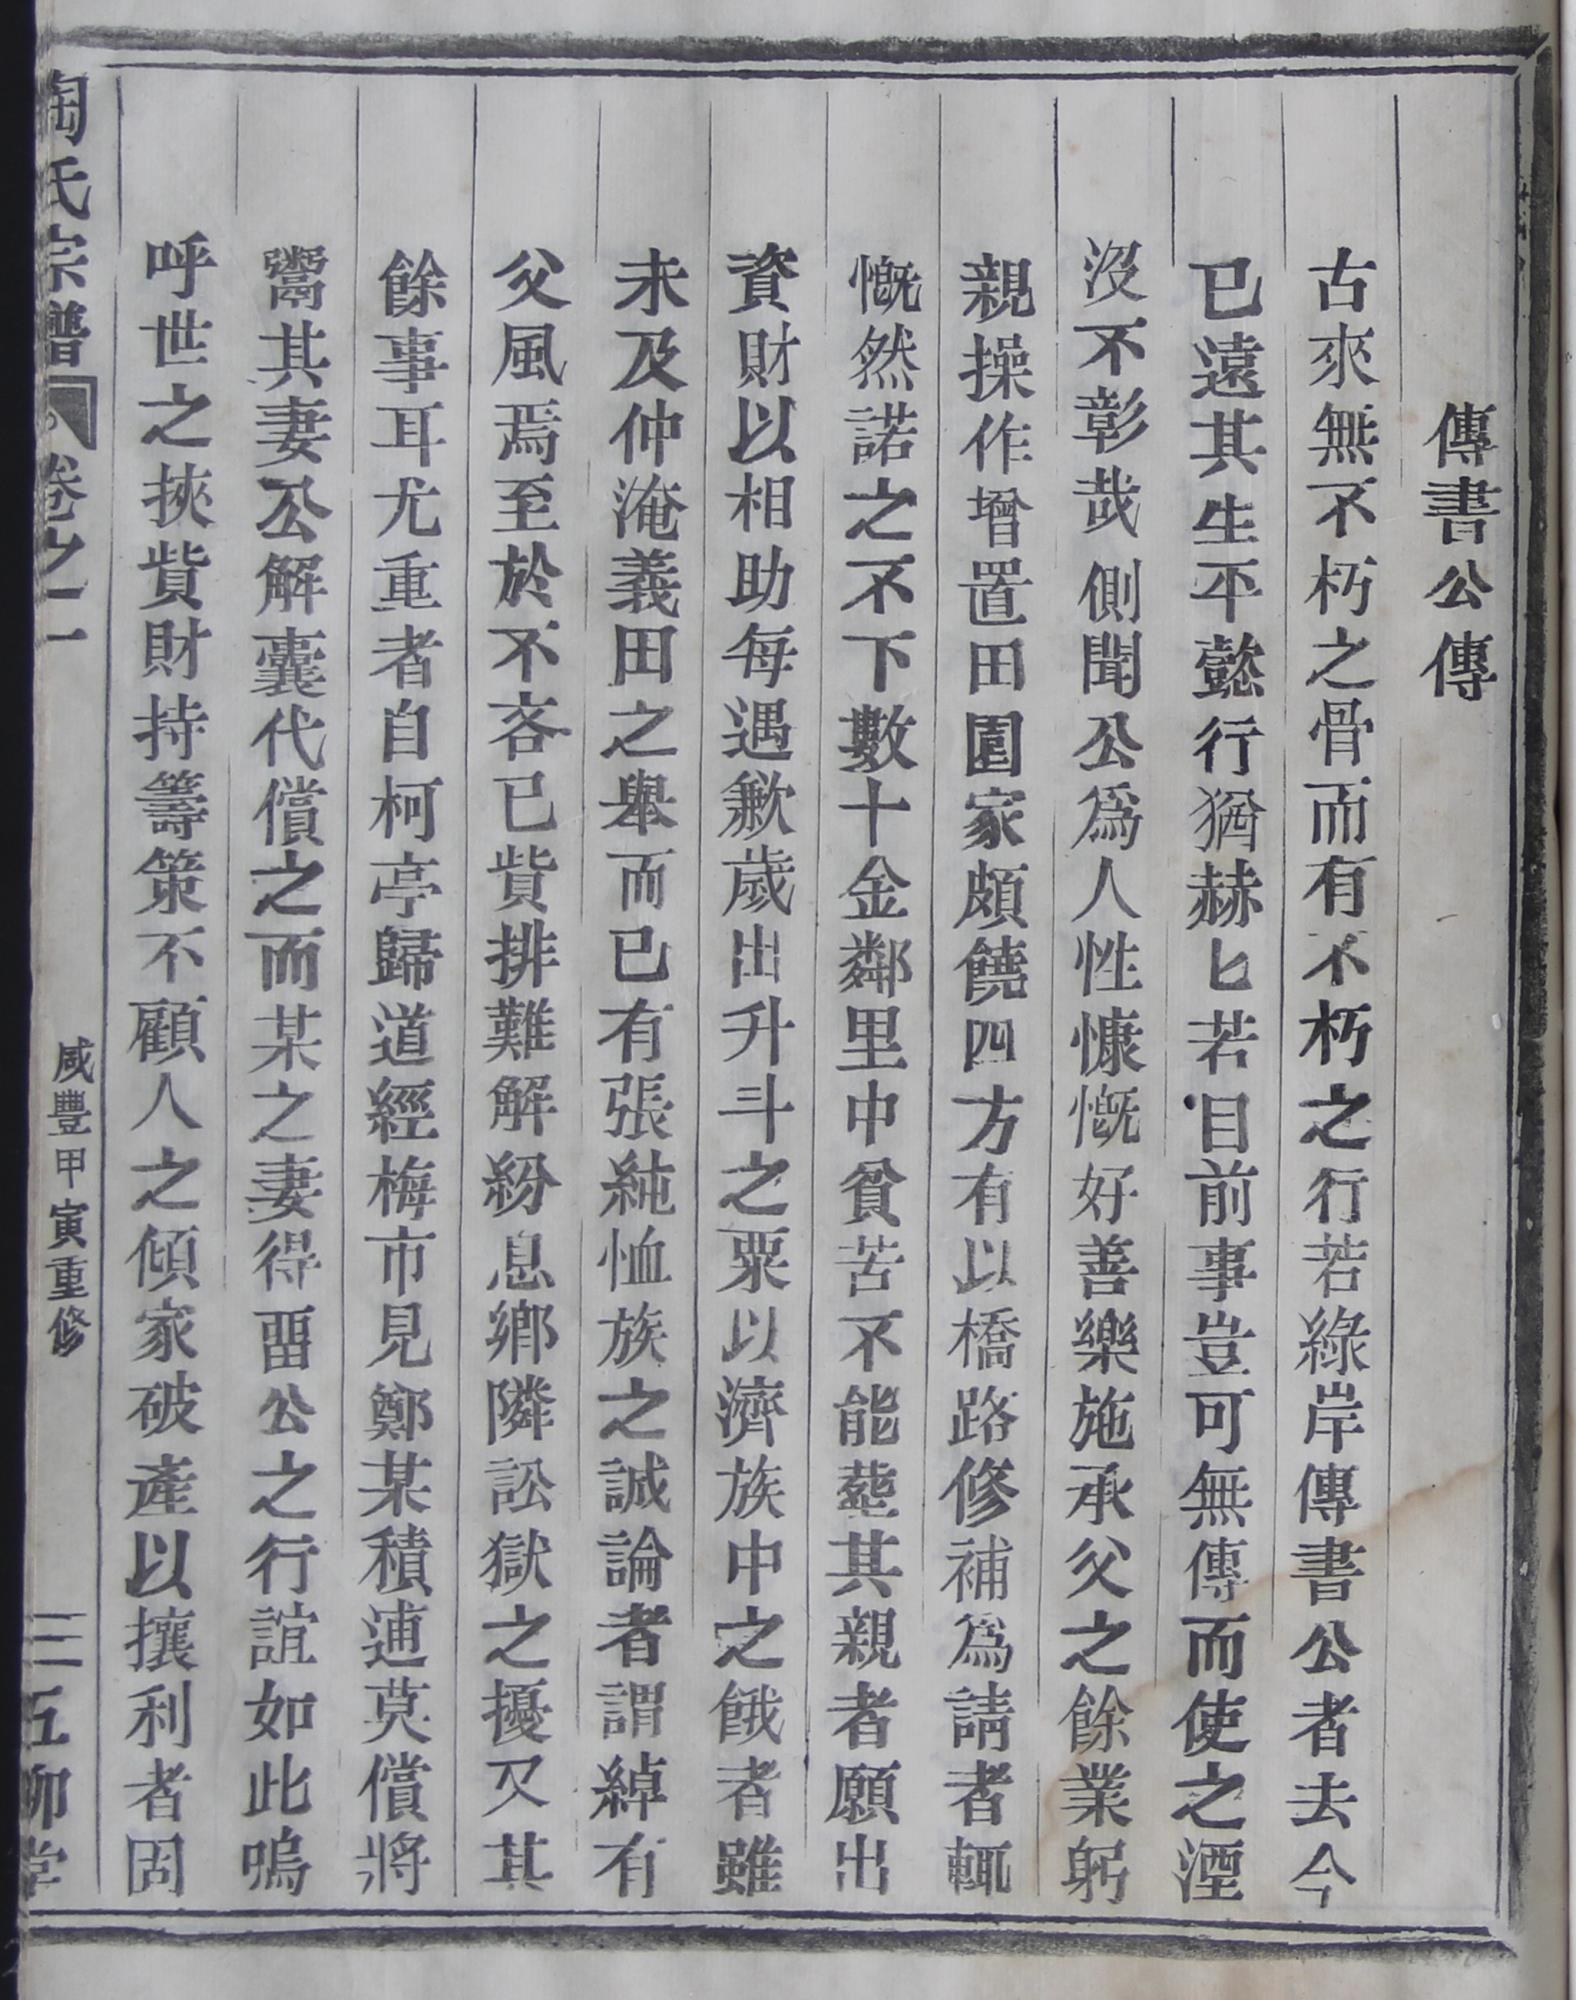 傳書公傳
古來無不朽之骨而有不朽之行若綠岸傳書公者去今
已遠其生平懿行猶赫匕若目前事豈可無傳而使之湮
沒不彰哉側聞公爲人性慷慨好善樂施承父之餘業躬
親操作增置田園家頗饒四方有以橋路修補爲請者輒
慨然諾之不下數十金鄰里中貧苦不能塟其親者願出
資財以相助每遇歉歲出升斗之粟以濟族中之餓者雖
未及仲淹義田之舉而已有張純恤族之誠論者謂綽有
父風焉至於不吝已貲排難解紛息鄉隣訟獄之擾又其
餘事耳尤重者自柯亭歸道經梅市見鄭某積逋莫償將
鬻其妻公解囊代償之而某之妻得畱公之行誼如此嗚
呼世之挾貲財持籌策不顧人之傾家破產以攘利者固
陶氏宗譜 卷之一 咸豐甲寅重修 三 五柳堂